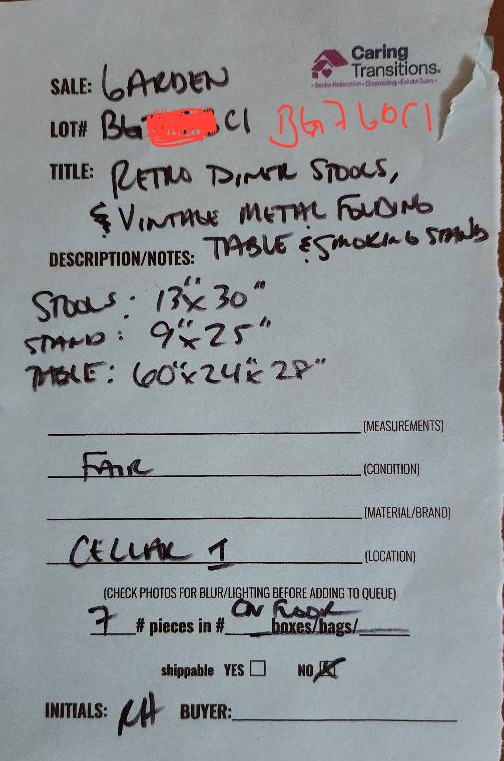 Caring
Transitions.
Senior Relocation • Downsizing • Estate Sales
SALE: GARDEN
LOT# BG CI BG760CI
TITLE: RETRO DINER STOOLS,
& VINTAGE METAL FOLDING
TABLE & SMOKING STAND
DESCRIPTION/NOTES:
STOOLS: 13"x 30"
STAND: 9"x 25"
TABLE: 60"x 24"x 28"
(MEASUREMENTS)
FAIR (CONDITION)
(MATERIAL/BRAND)
CELLAR I (LOCATION)
(CHECK PHOTOS FOR BLUR/LIGHTING BEFORE ADDING TO QUEUE)
ON FLOOR
7 # pieces in # boxes/bags/
shippable YES NO X
INITIALS: RH BUYER: